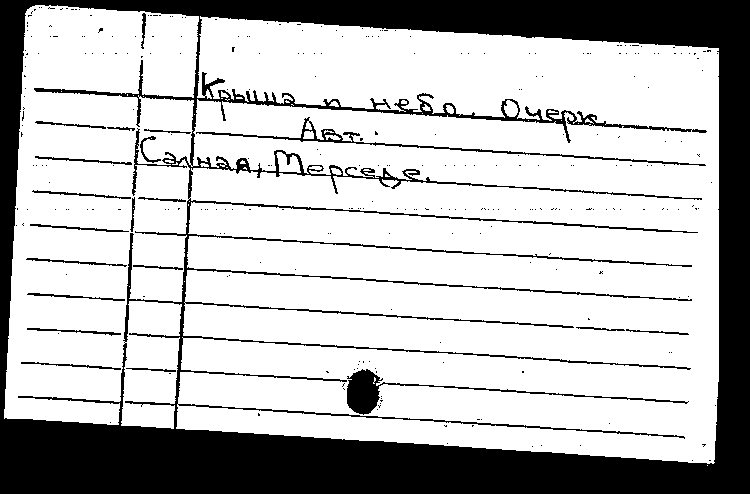 Крыша и небо. Очерк.
Авт.:
Салная, Мерседе.